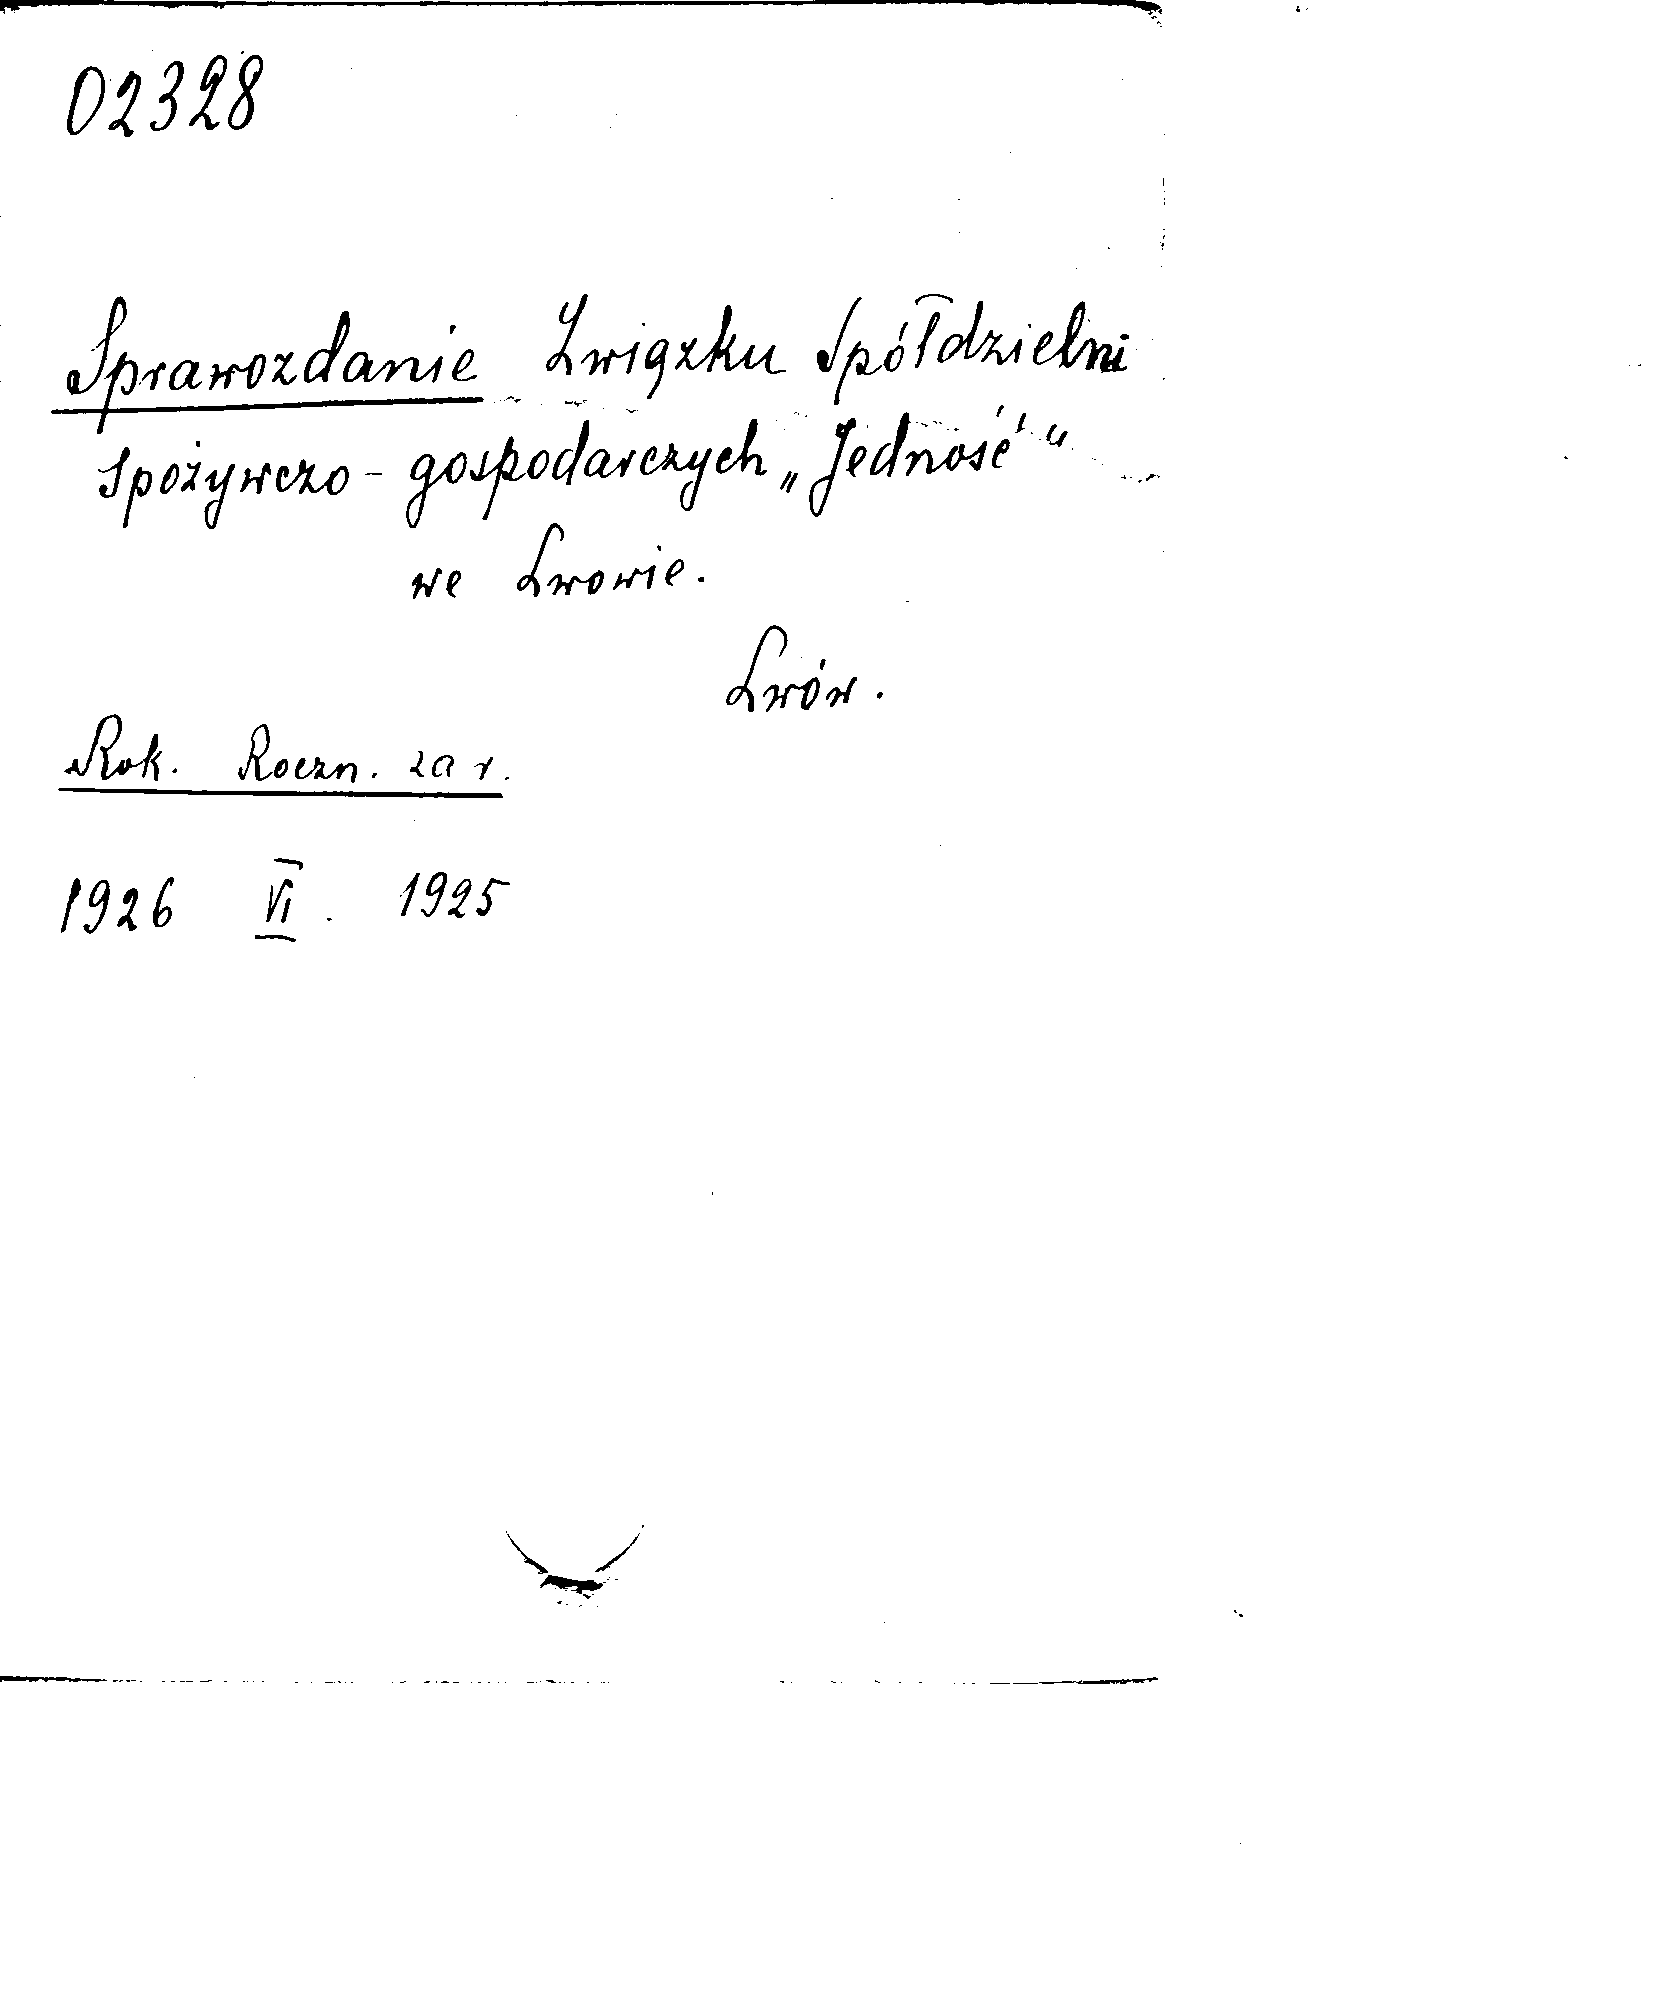 02328
Sprawozdanie Związku Spółdzielni
spożywczo - gospodarczych „Jedność"
we Lwowie.
Lwów.
Rok. Roczn. za r.
1926 VI. 1925